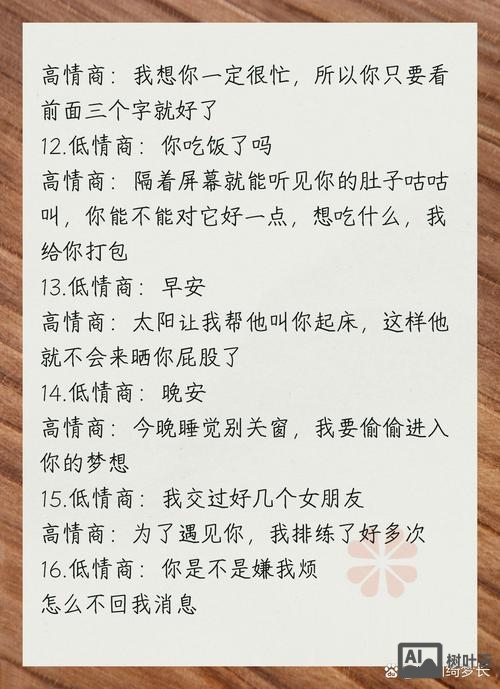 高情商：我想你一定很忙，所以你只要看
前面三个字就好了
12.低情商：你吃饭了吗
高情商：隔着屏幕就能听见你的肚子咕咕
叫，你能不能对它好一点，想吃什么，我
给你打包
13.低情商：早安
高情商：太阳让我帮他叫你起床，这样他
就不会来晒你屁股了
14.低情商：晚安
高情商：今晚睡觉别关窗，我要偷偷进入
你的梦想
15.低情商：我交过好几个女朋友
高情商：为了遇见你，我排练了好多次
16.低情商：你是不是嫌我烦
怎么不回我消息
AI
树叶
绮梦长